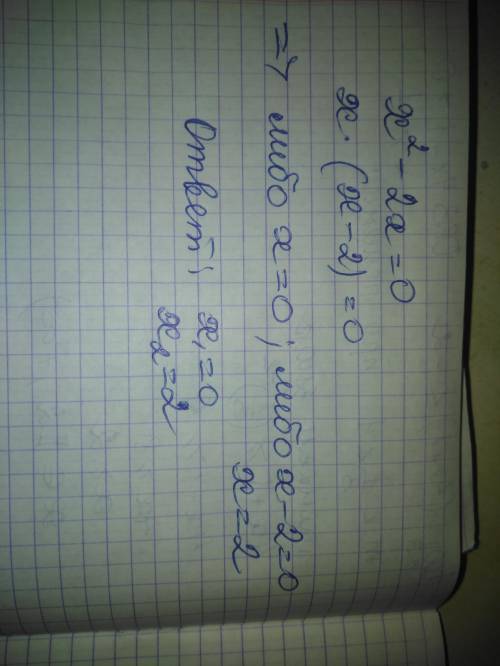 x² - 2x = 0
x · (x - 2) = 0
=> либо x = 0; либо x - 2 = 0
x = 2
Ответ: x₁ = 0
x₂ = 2